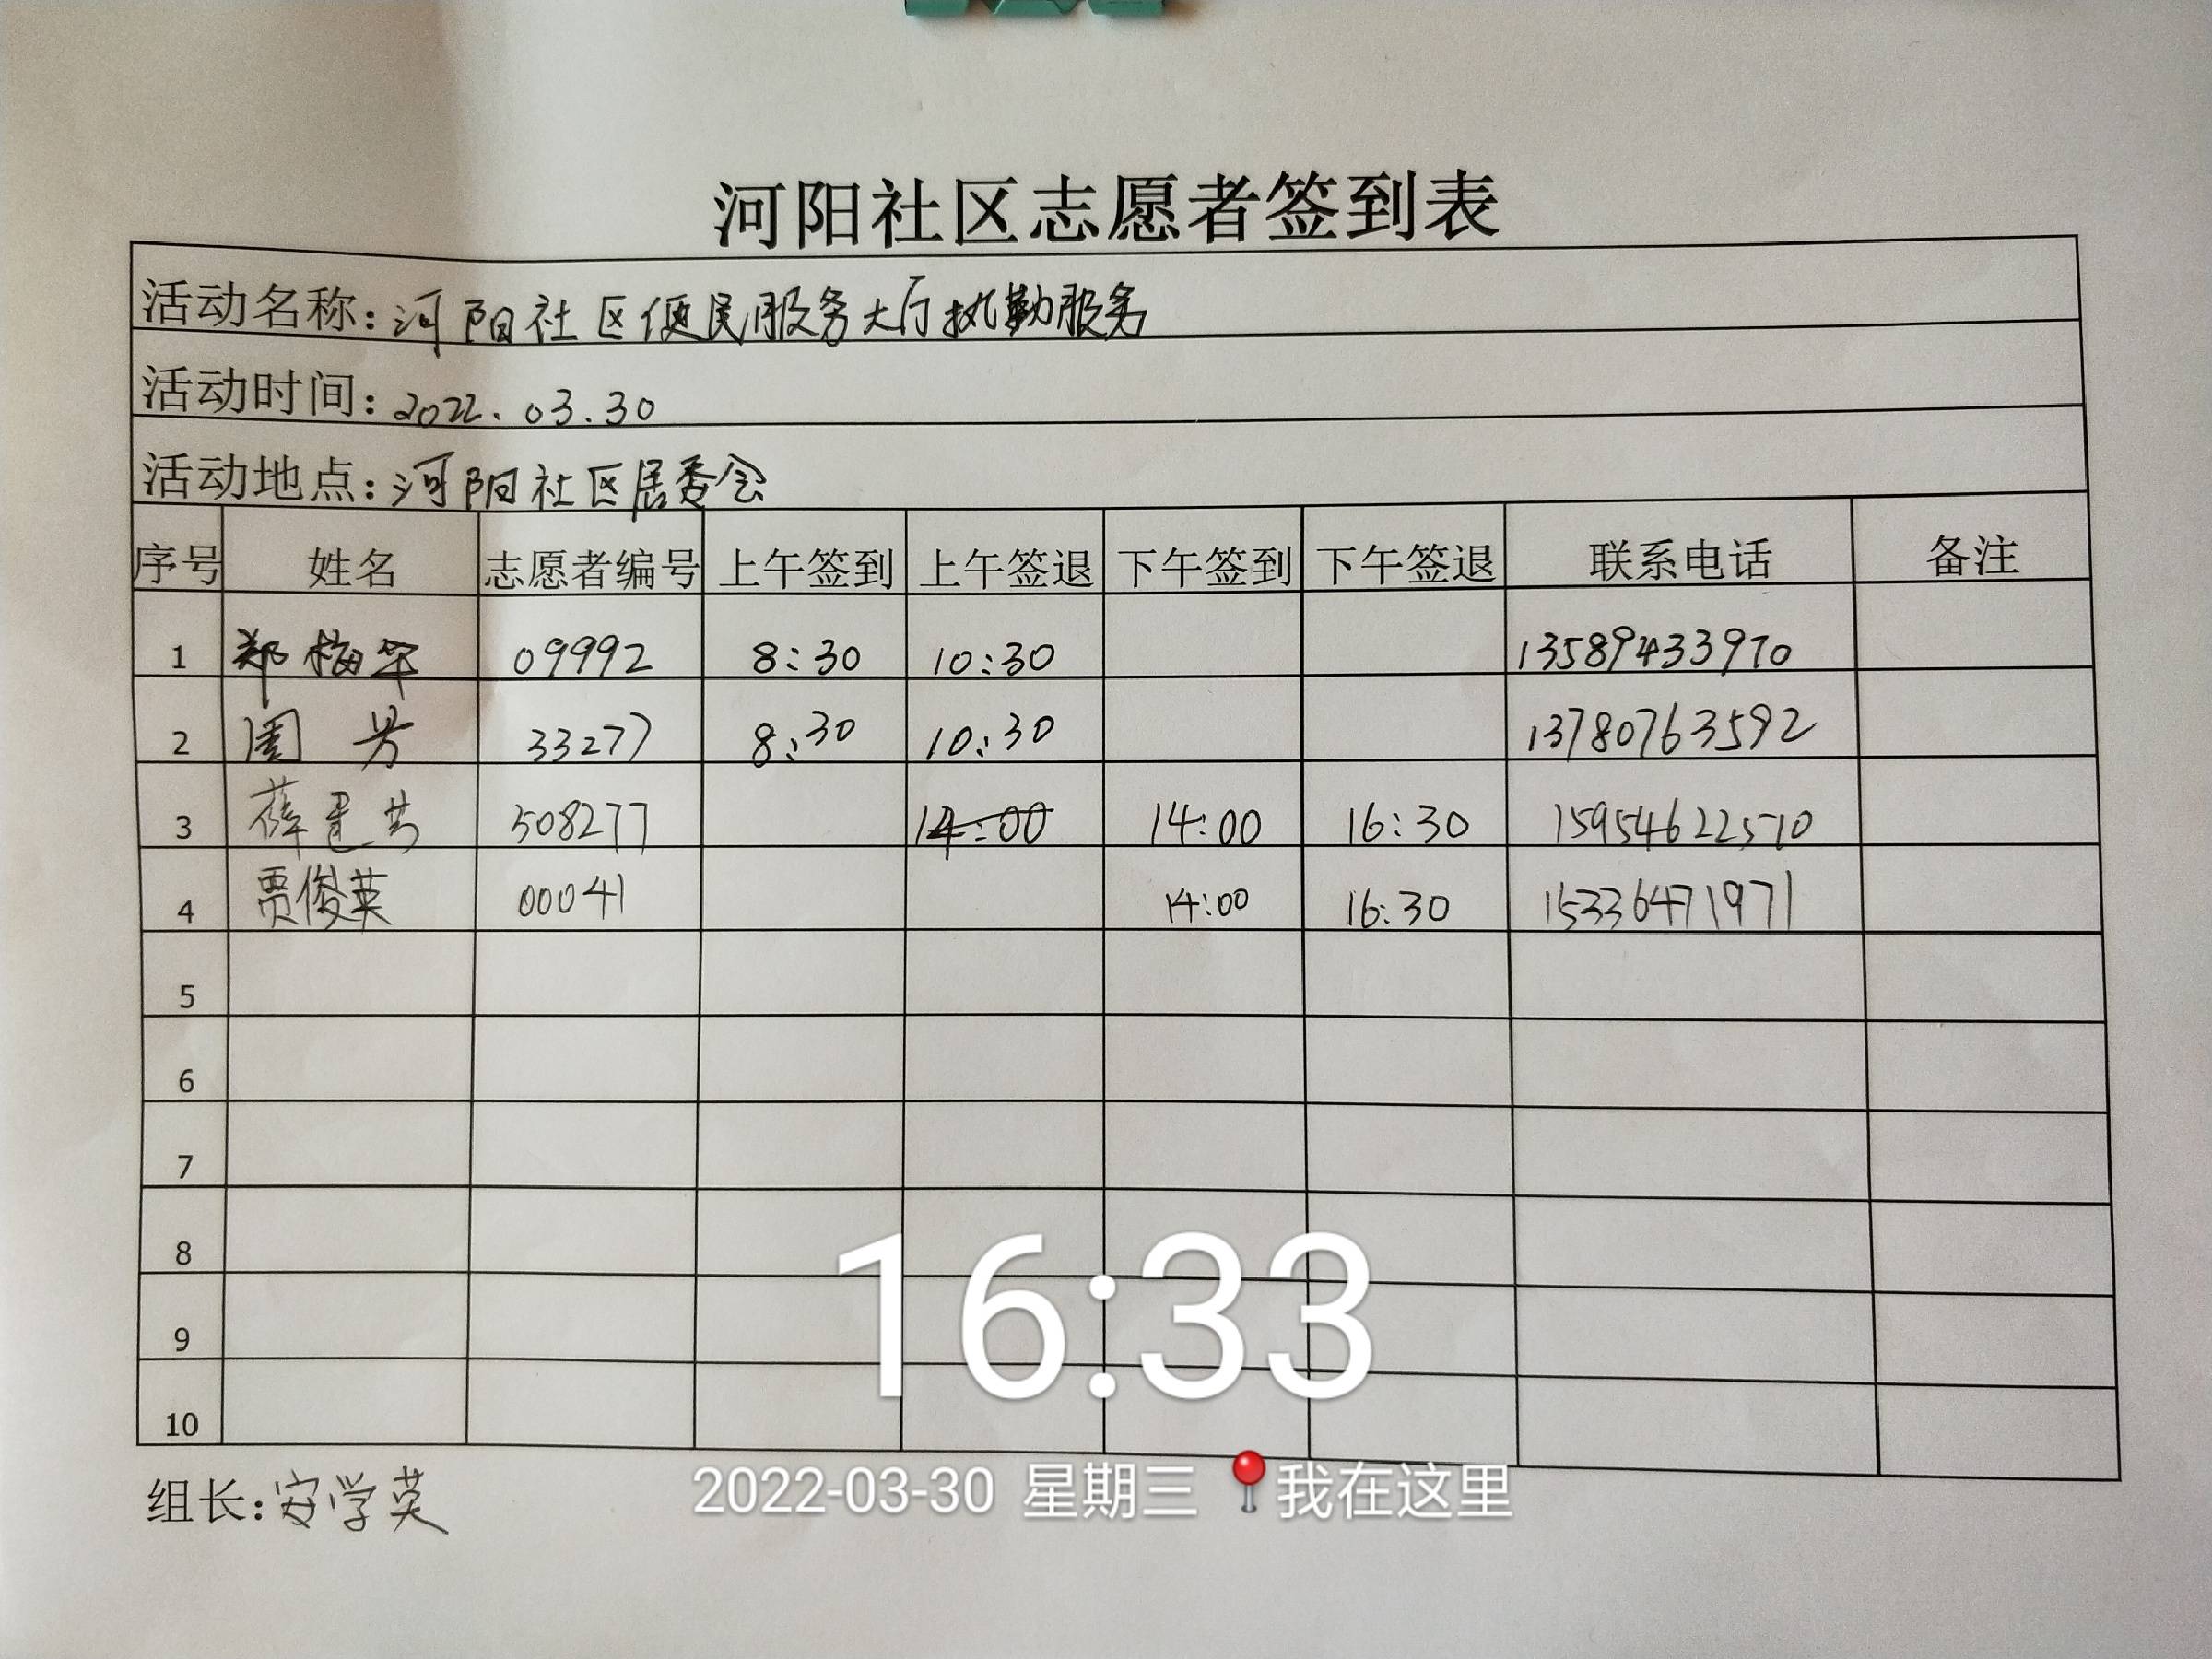 河阳社区志愿者签到表
活动名称:河阳社区便民服务大厅执勤服务
活动时间:2022.03.30
活动地点:河阳社区居委会
序号 姓名 志愿者编号 上午签到 上午签退 下午签到 下午签退 联系电话 备注
1 郑梅华 09992 8:30 10:30 13589433970
2 周芳 33277 8:30 10:30 13780763592
3 薛建芳 508277 14:00 14:00 16:30 15954622570
4 贾俊英 00041 14:00 16:30 15336471971
5
6
7
8
9
10
16:33
组长:安学英
2022-03-30 星期三 我在这里